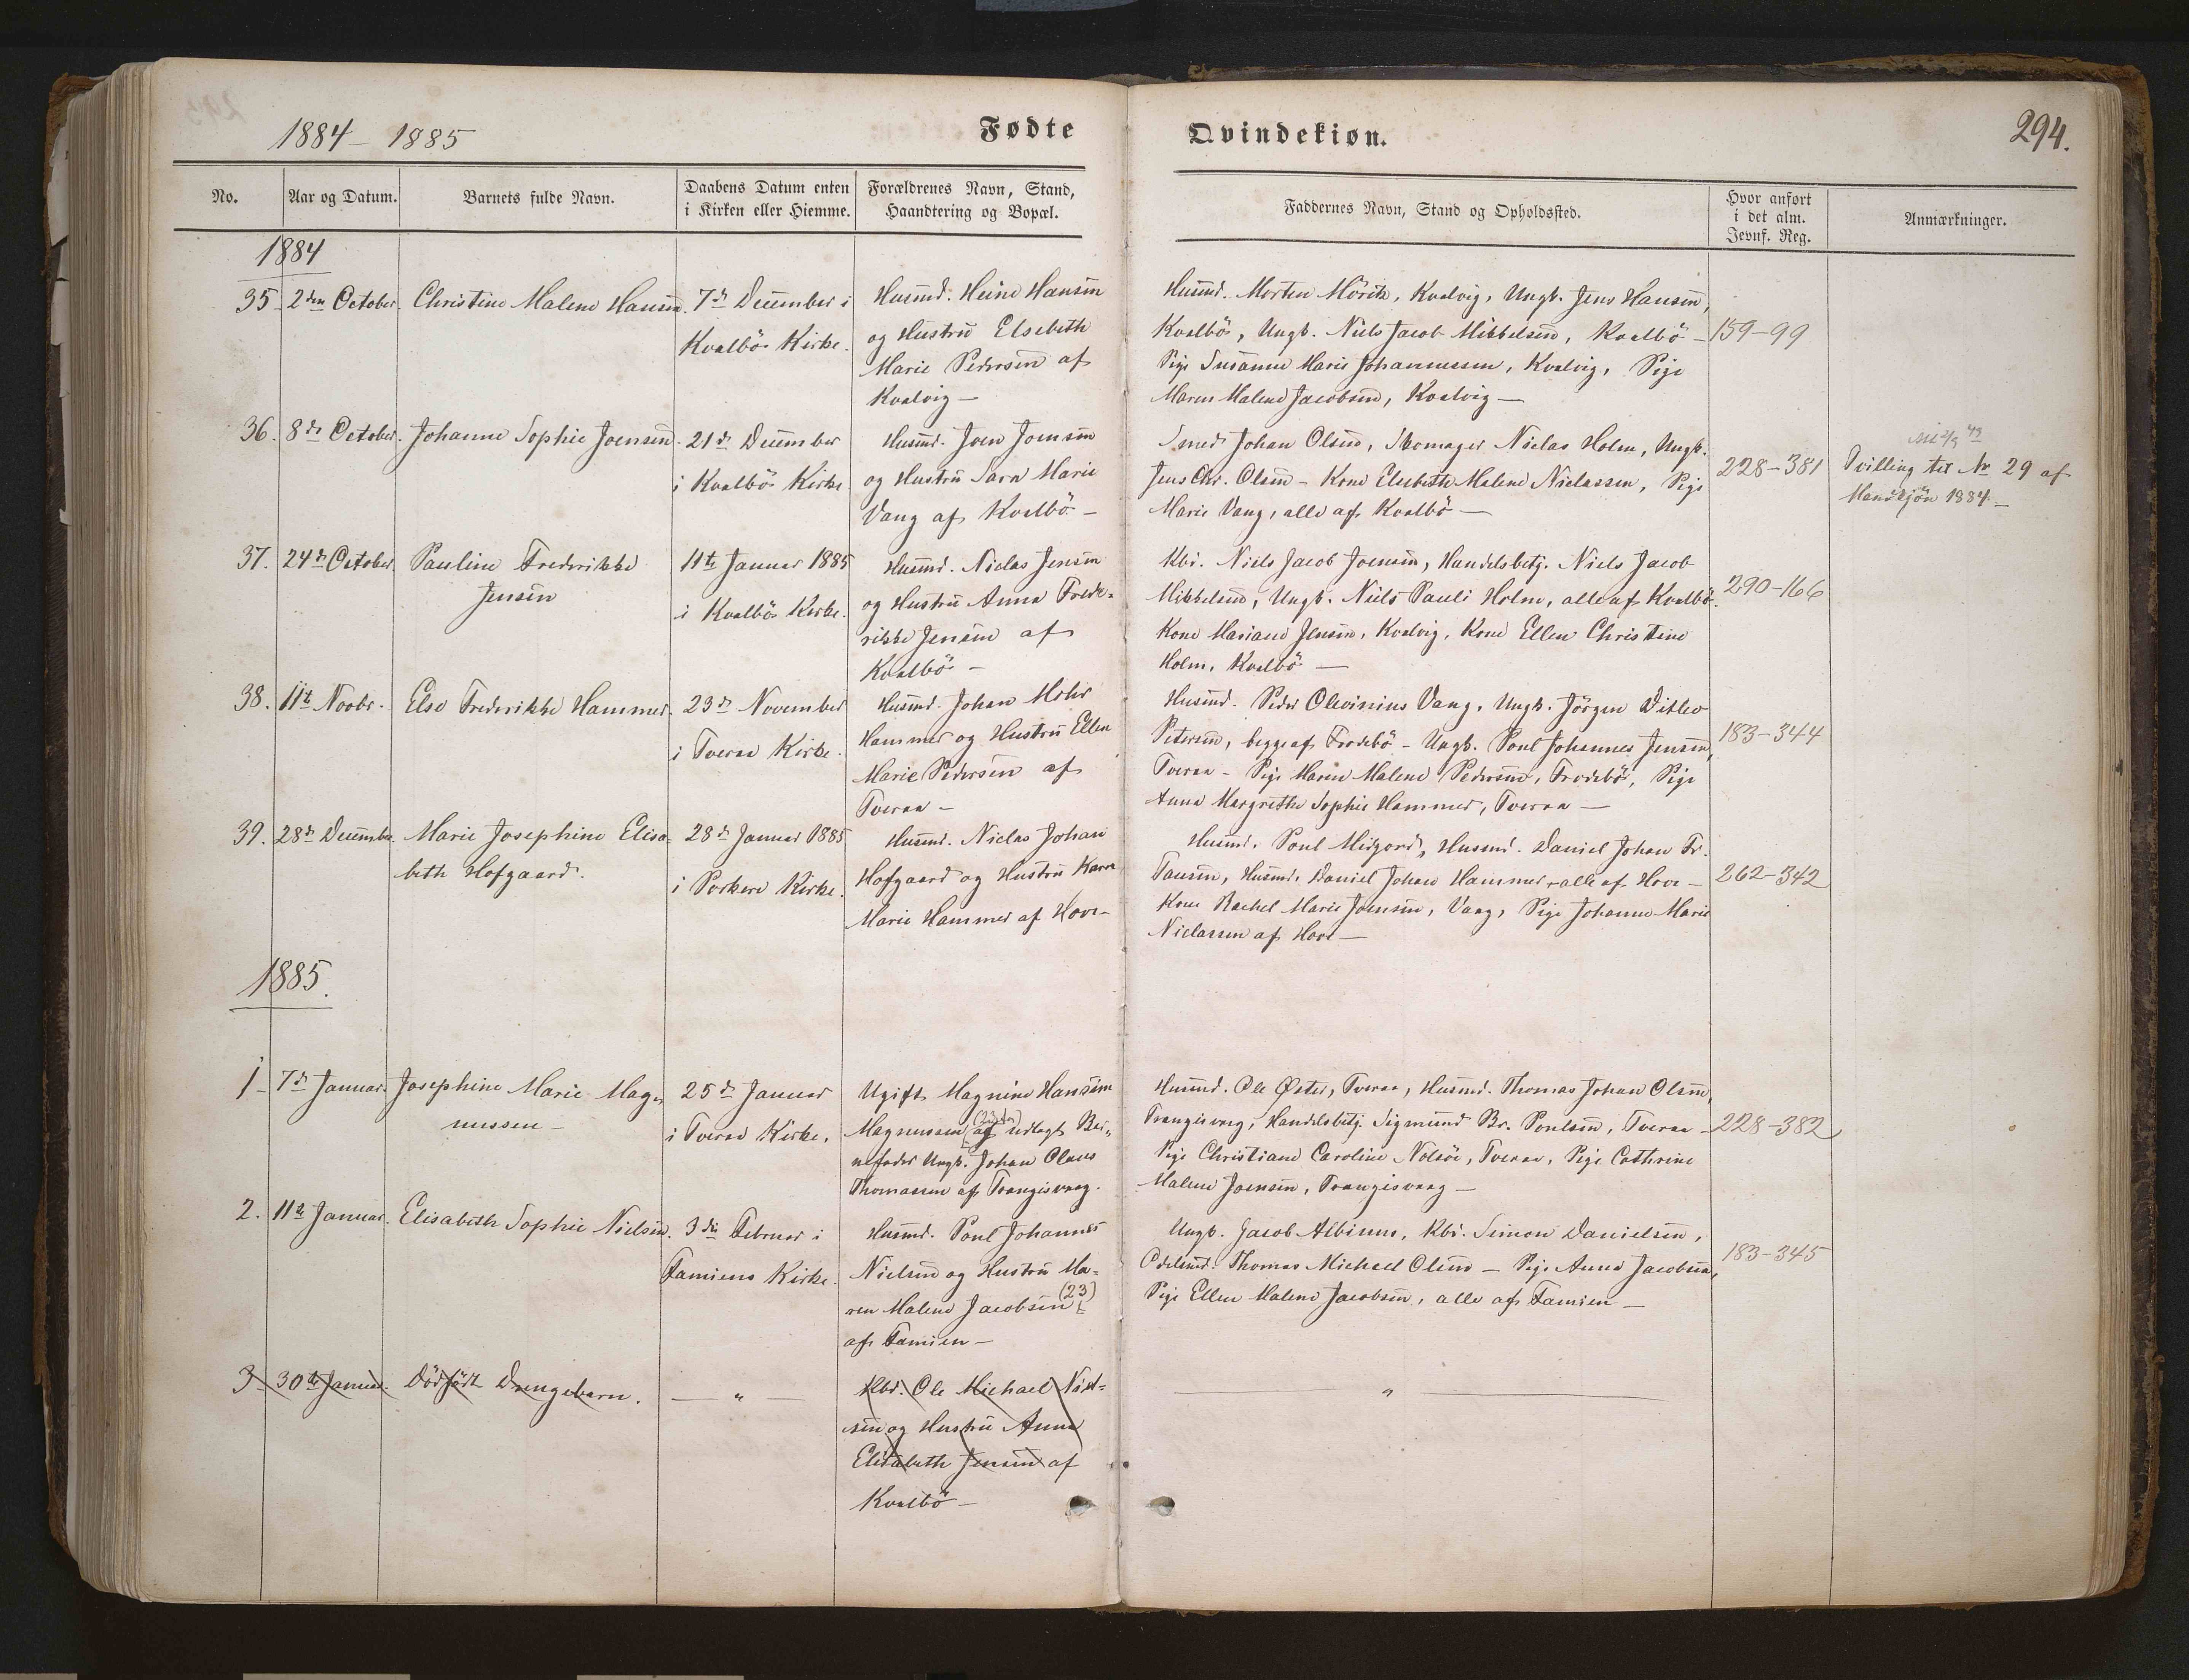 1884 - 1885
Fødte
Qvindekiøn.
294.
No.
Aar og Datum.
Barnets fulde Navn.
Daabens Datum enten
i Kirken eller Hiemme.
Forældrenes Navn, Stand,
Haandtering og Bopæl.
Faddernes Navn, Stand og Opholdssted.
Hvor anført
i det alm.
Jevnf. Reg.
Anmærkninger.
1884
35
2den October.
Christine Malene Hansen.
7de December i
Kvalbö Kirke.
Husmd. Heine Hansen
og Hustru Elsebeth
Marie Pedersen af
Kvalvig -
Husmd. Morten Möritz, Kvalvig, Ungk. Jens Hansen,
Kvalbö, Ungk. Niels Jacob Mikkelsen, Kvalbö -
Pige Susanne Marie Johannessen, Kvalvig, Pige
Maren Malene Jacobsen, Kvalvig -
159-99
36.
8de October.
Johanne Sophie Joensen.
21de December
i Kvalbö Kirke
Husmd. Joen Joensen
og Hustru Sara Marie
Vang af Kvalbö -
Smed Johan Olsen, Skomager Niclas Holm, Ungk.
Jens Chr. Olsen - Kone Elsebeth Malene Niclassen, Pige
Marie Vang, alle af Kvalbö -
228-381
Tvilling til Nr 29 af
Mandkjön 1884 -
37.
24de October.
Pauline Frederikke
Jensen
11te Januar 1885
i Kvalbö Kirke.
Husmd. Niclas Jensen
og Hustru Anna Frede-
rikke Jensen af
Kvalbö -
Kbd. Niels Jacob Joensen, Handelsbetj. Niels Jacob
Mikkelsen, Ungk. Niels Pauli Holm, alle af Kvalbö.
Kone Mariane Jensen, Kvalvig, Kone Ellen Christine
Holm, Kvalbö -
290-166
38.
11te Novbr.
Else Frederikke Hammer.
23de November
i Tveraa Kirke.
Husmd. Johan Mohr
Hammer og Hustru Ellen
Marie Pedersen af
Tveraa -
Husmd. Peder Olevinius Vang, Ungk. Jörgen Ditlev
Petersen, begge af Frodebö - Ungk. Poul Johannes Jensen,
Tveraa - Pige Maren Malene Pedersen, Frodebö, Pige
Anna Margrethe Sophie Hammer, Tveraa -
183-344
39.
28de December.
Marie Josephine Elisa-
beth Hofgaard.
28de Januar 1885
i Porkeri Kirke.
Husmd. Niclas Johan
Hofgaard og Hustru Karen
Marie Hammer af Hove -
Husmd. Poul Midgord, Husmd. Daniel Johan Fr.
Tausen, Husmd. Daniel Johan Hammer, alle af Hove -
Kone Rachel Marie Joensen, Vaag, Pige Johanne Marie
Niclassen af Hove -
262-342
1885.
1 -
7de Januar.
Josephine Marie Mag-
nussen -
25de Januar
i Tveraa Kirke.
Ugift Magnine Hansine
Magnussen af udlagt Bar-
nefader Ungk. Johan Olaus
Thomassen af Trangisvaag.
Husmd. Ole Øster, Tveraa, Husmd. Thomas Johan Olsen,
Trangisvaag, Handelsbetj. Sigmund Br. Poulsen, Tveraa -
Pige Christiane Caroline Nolsöe, Tveraa, Pige Cathrine
Malene Joensen, Trangisvaag -
228-382
2.
11te Januar.
Elisabeth Sophie Nielsen.
3die Februar i
Famiens Kirke.
Husmd. Poul Johannes
Nielsen og Hustru Ma-
ren Malene Jacobsen (23)
af Famien -
Ungk. Jacob Albinus, Kbd. Simon Danielsen,
Odelsmd. Thomas Michael Olsen - Pige Anna Jacobsen,
Pige Ellen Malene Jacobsen, alle af Famien -
183-345
3
30te Januar.
Dödfödt Drengebarn.
- " -
Kbd. Ole Michael Niel-
sen og Hustru Anna
Elisabeth Jensen af
Kvalbö -
"